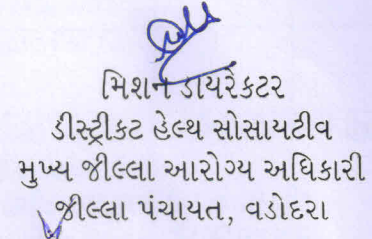 મિશન ડાયરેક્ટર
ડીસ્ટ્રીકટ હેલ્થ સોસાયટીવ
મુખ્ય જીલ્લા આરોગ્ય અધિકારી
જીલ્લા પંચાયત, વડોદરા